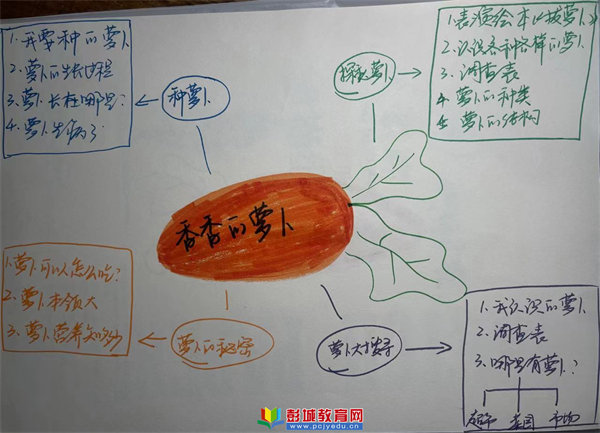 1. 我要种的萝卜
2. 萝卜的生长过程
3. 萝卜长在哪里?
4. 萝卜生病了
种萝卜
探秘萝卜
1. 表演绘本《拔萝卜》
2. 认识各种各样的萝卜
3. 调查表
4. 萝卜的种类
5. 萝卜的结构
香香的萝卜
1. 萝卜可以怎么吃?
2. 萝卜本领大
3. 萝卜营养知多少
萝卜的秘密
萝卜大搜寻
1. 我认识的萝卜
2. 调查表
3. 哪里有萝卜?
超市 菜园 市场
彭城教育网
www.pcjyedu.cn